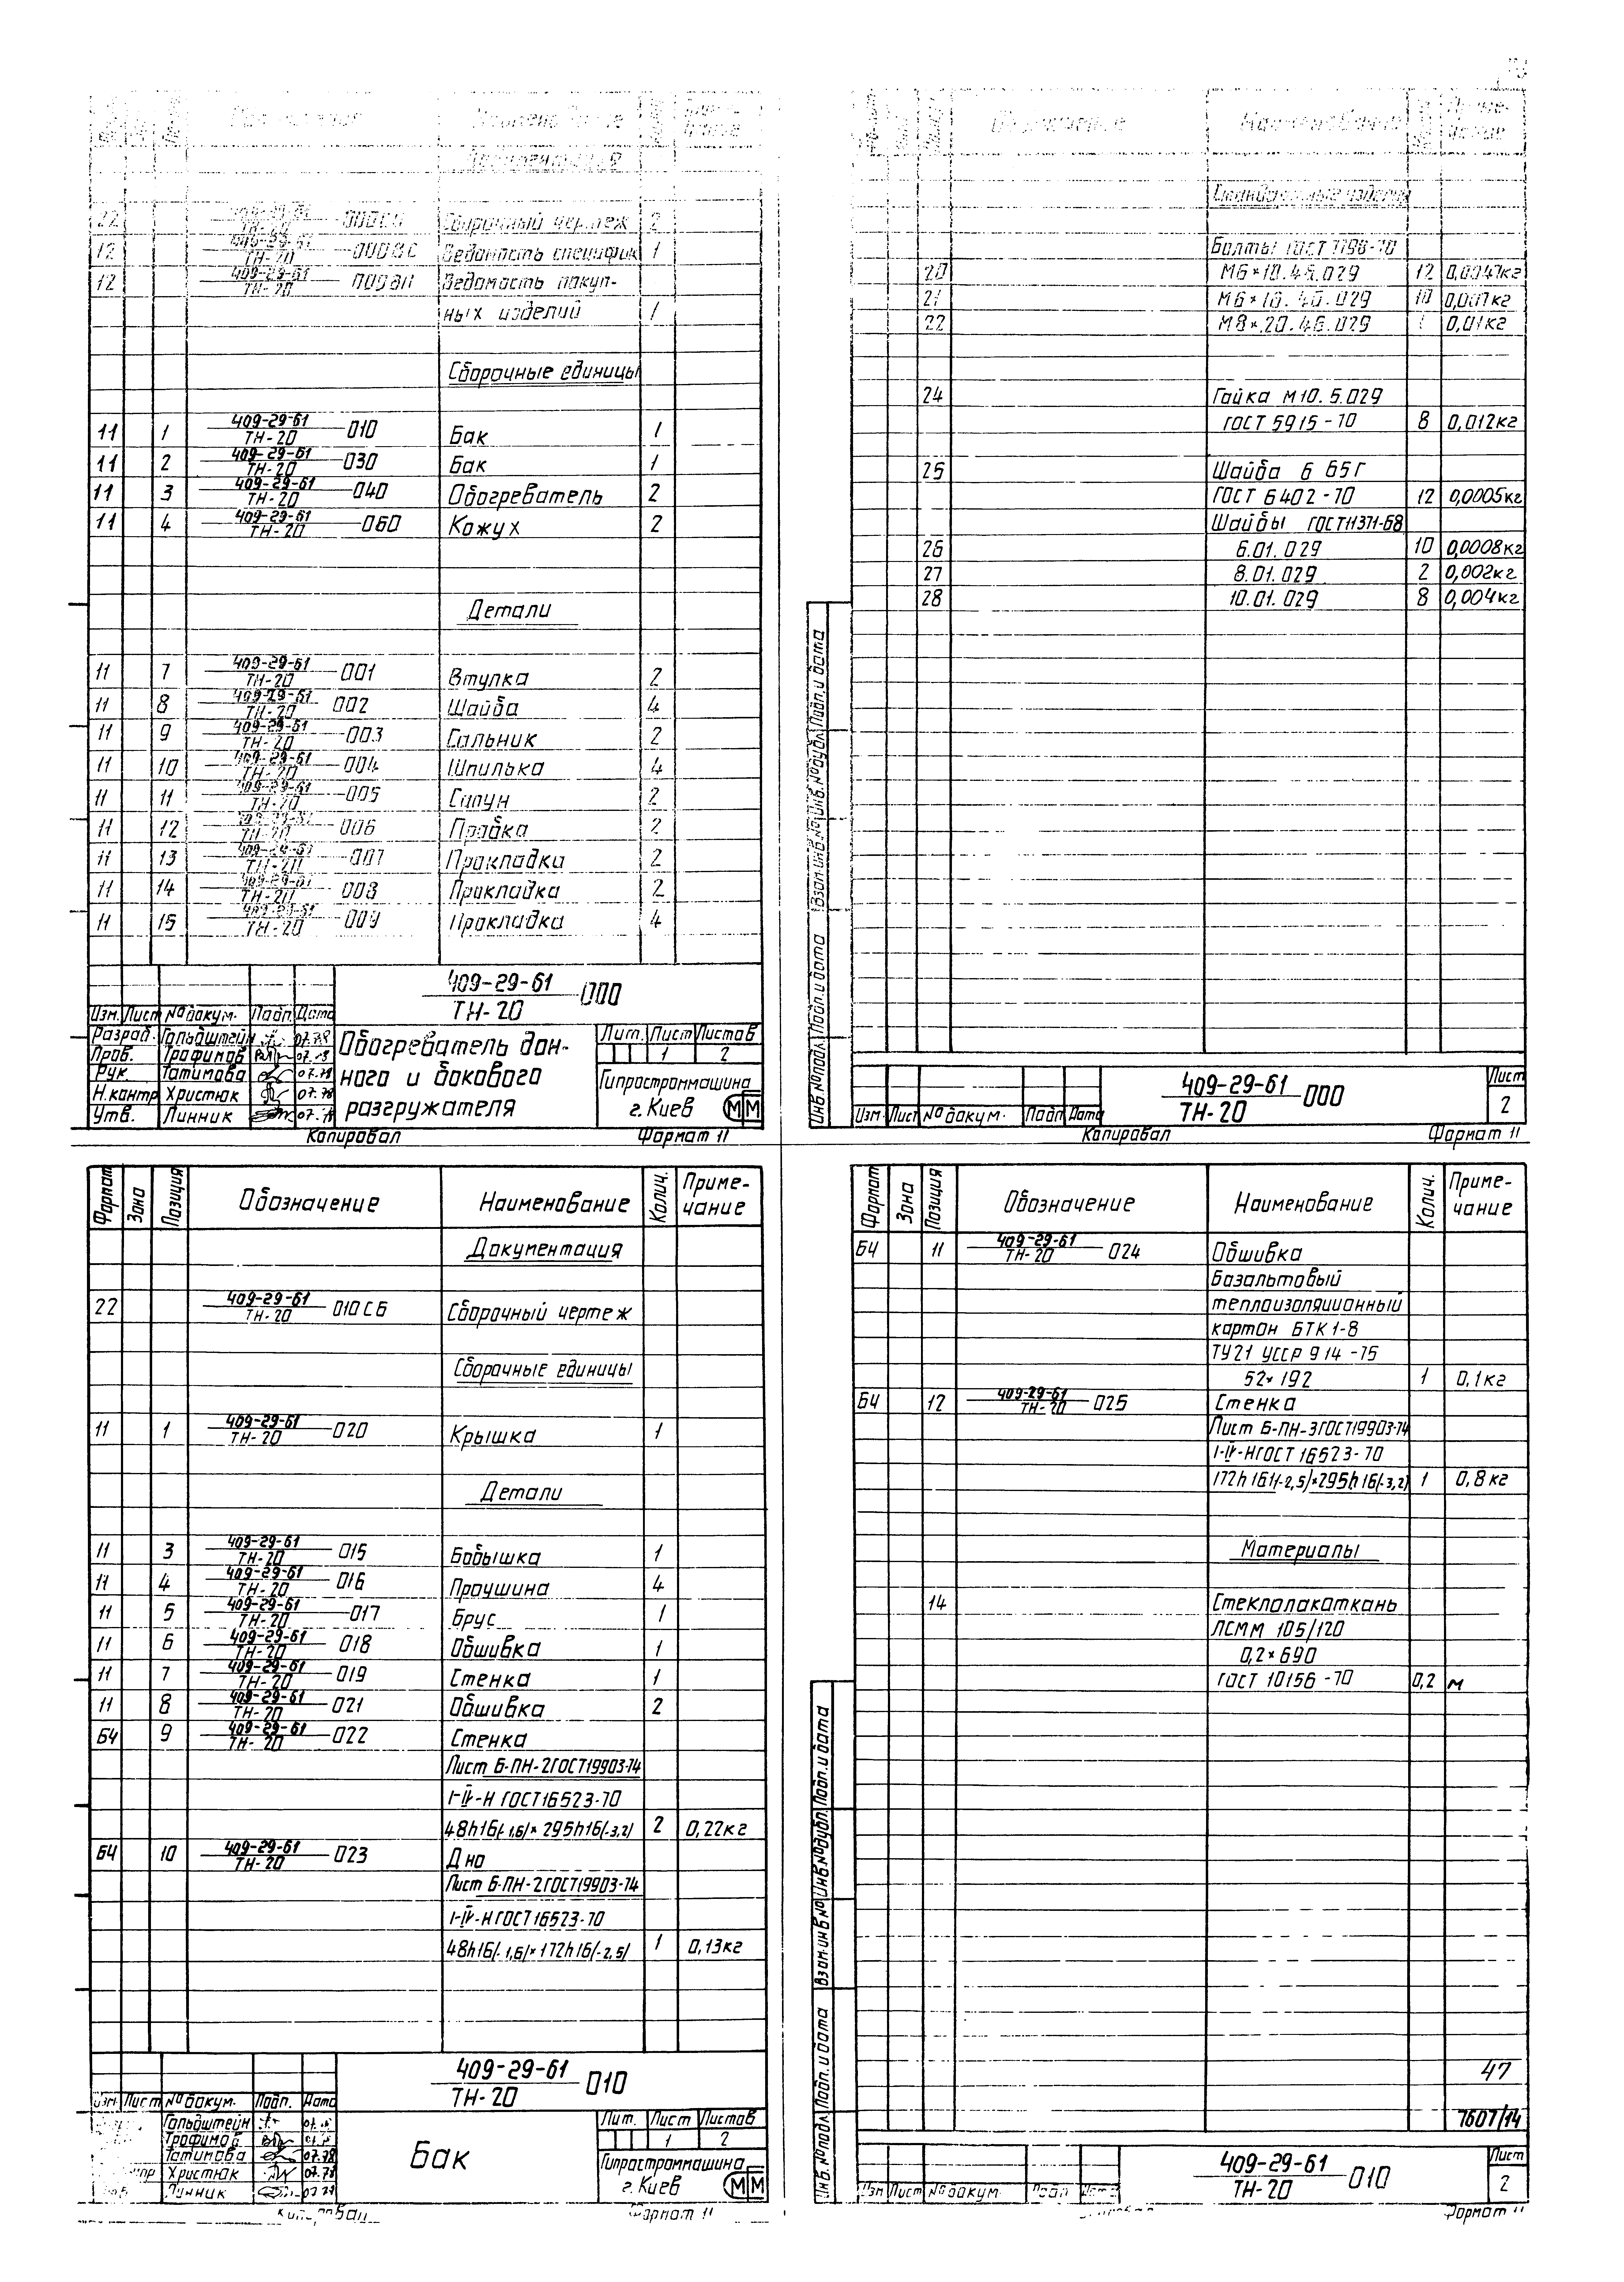 Сборочный чертеж 2
12 Ведомость специфик 1
12 Ведомость покуп-
ных изделий 1
Сборочные единицы
11 1 409-29-61/ТН-20 010 Бак 1
11 2 409-29-61/ТН-20 030 Бак 1
11 3 409-29-61/ТН-20 040 Обогреватель 2
11 4 409-29-61/ТН-20 060 Кожух 2
Детали
11 7 409-29-61/ТН-20 001 Втулка 2
11 8 409-29-61/ТН-20 002 Шайба 4
11 9 409-29-61/ТН-20 003 Сальник 2
11 10 409-29-61/ТН-20 004 Шпилька 4
11 11 409-29-61/ТН-20 005 Сапун 2
11 12 409-29-61/ТН-20 006 Пробка 2
11 13 409-29-61/ТН-20 007 Прокладка 2
11 14 409-29-61/ТН-20 008 Прокладка 2
11 15 409-29-61/ТН-20 009 Прокладка 4
409-29-61/ТН-20 000
Изм. Лист № докум. Подп. Дата
Разраб. Гольдштейн 07.78
Пров. Трофимов
Рук. Татимова 07.78
Н.контр Христюк 07.78
Утв. Линник
Обогреватель дон-
ного и бокового
разгружателя
Лит. Лист Листов
1 2
Гипростроммашина
г. Киев
Копировал Формат 11
Стандартные изделия
Болты ГОСТ 7798-70
20 М6×10.46.029 12 0,0047кг
21 М6×18.46.029 10
22 М8×20.46.029 0,01кг
24 Гайка М10.5.029
ГОСТ 5915-70 8 0,012кг
25 Шайба 6 65Г
ГОСТ 6402-70 12 0,0005кг
Шайбы ГОСТ11371-68
26 6.01.029 10 0,0008кг
27 8.01.029 2 0,002кг
28 10.01.029 8 0,004кг
Инв.№подл. Подп.и дата Взам.инв.№ Инв.№дубл. Подп.и дата
Изм. Лист № докум. Подп Дата
409-29-61/ТН-20 000
Лист
2
Копировал Формат 11
Формат Зона Позиция Обозначение Наименование Колич. Приме-
чание
Документация
22 409-29-61/ТН-20 010СБ Сборочный чертеж
Сборочные единицы
11 1 409-29-61/ТН-20 020 Крышка 1
Детали
11 3 409-29-61/ТН-20 015 Бобышка 1
11 4 409-29-61/ТН-20 016 Проушина 4
11 5 409-29-61/ТН-20 017 Брус 1
11 6 409-29-61/ТН-20 018 Обшивка 1
11 7 409-29-61/ТН-20 019 Стенка 1
11 8 409-29-61/ТН-20 021 Обшивка 2
БЧ 9 409-29-61/ТН-20 022 Стенка
Лист Б-ПН-2ГОСТ19903-74
I-IV-Н ГОСТ16523-70
48h16(-1,6)×295h16(-3,2) 2 0,22кг
БЧ 10 409-29-61/ТН-20 023 Дно
Лист Б-ПН-2ГОСТ19903-74
I-IV-Н ГОСТ16523-70
48h16(-1,6)×172h16(-2,5) 1 0,13кг
409-29-61/ТН-20 010
Изм Лист № докум. Подп. Дата
Гольдштейн
Трофимов
Татимова 07.78
Христюк 07.78
Линник
Бак
Лит. Лист Листов
1 2
Гипростроммашина
г. Киев
Формат 11
Формат Зона Позиция Обозначение Наименование Колич. Приме-
чание
БЧ 11 409-29-61/ТН-20 024 Обшивка
Базальтовый
теплоизоляционный
картон БТК 1-8
ТУ21 УССР 914-75
52×192 1 0,1кг
БЧ 12 409-29-61/ТН-20 025 Стенка
Лист Б-ПН-3ГОСТ19903-74
I-IV-НГОСТ 16523-70
172h16(-2,5)×295h16(-3,2) 1 0,8кг
Материалы
14 Стеклолакоткань
ЛСММ 105/120
0,2×690
ГОСТ 10156-70 0,2 м
47
7607/14
Инв.№подл. Подп.и дата Взам.инв№ Инв№дубл. Подп.и дата
Изм Лист № докум. Подп Дата
409-29-61/ТН-20 010
Лист
2
Формат 11